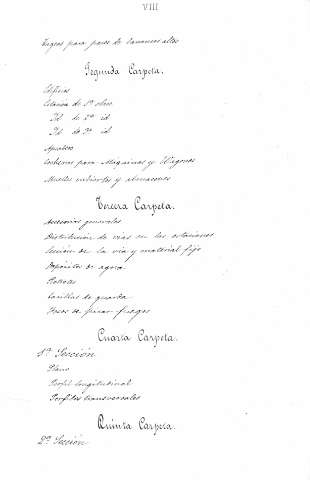 VIII
para paso de
Segunda Carpeta.
Edificios
Estacion de 1ª clase
Id de 2ª id
Id de 3ª id
Apeadero
Cocheras para Maquinas y Wagones
Muelles cubiertos y almacenes
Tercera Carpeta.
Accesorios generales
Distribucion de vias en las estaciones
Seccion de la via y material fijo
Depositos de agua
Casillas de guarda
Fosos de picar fuegos
Cuarta Carpeta.
1ª Sección
Plano
Perfil longitudinal
Perfiles transversales
Quinta Carpeta.
2ª Sección